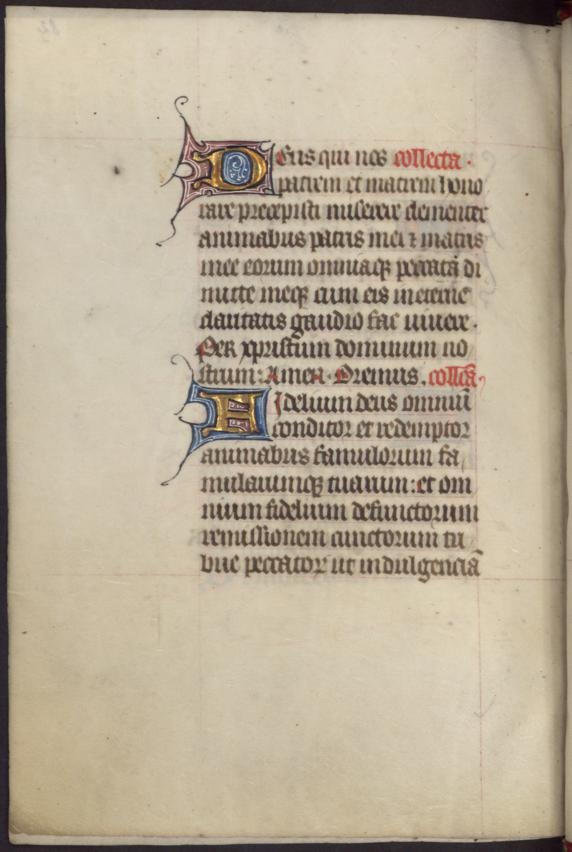 Deus qui nos collecta ·
patrem et matrem hono
rare precepisti miserere clementer
animabus patris mei ⁊ matris
mee eorum omniaqꝫ peccata di
mitte meqꝫ cum eis in eterne
claritatis gaudio fac uiuere ·
Per xpristum dominum no
strum : Amen · Oremus . collcā
Fidelium deus omniū
conditor et redemptor
animabus famulorum fa
mularumqꝫ tuarum : et om
nium fidelium defunctorum
remissionem cunctorum tri
bue peccatoꝝ ut indulgenciā